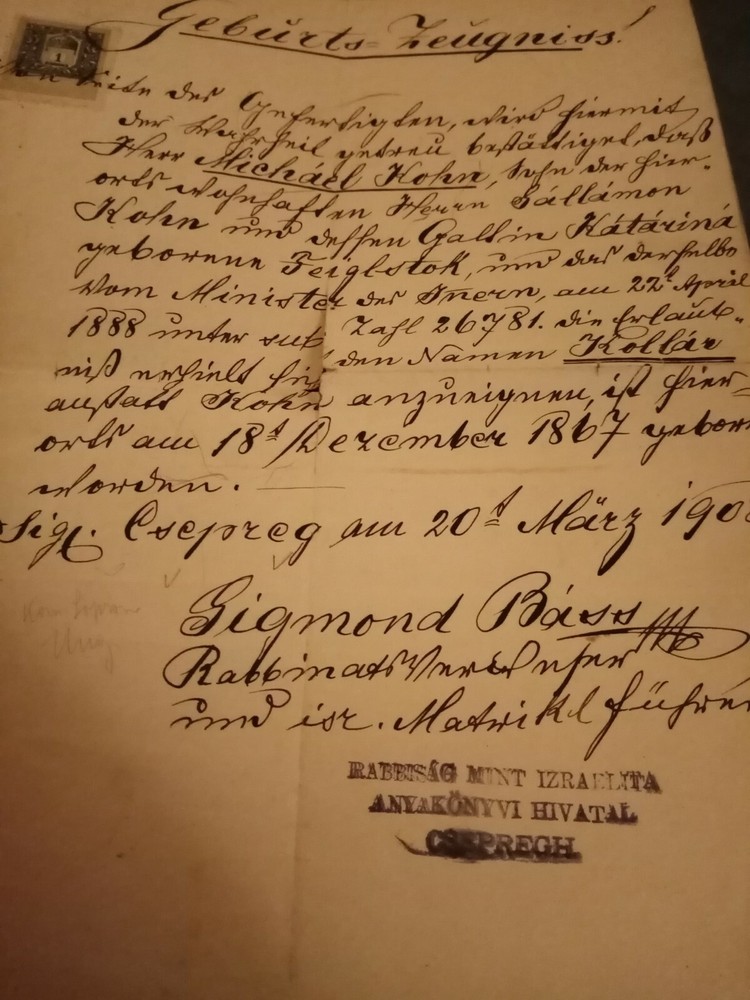 Geburts-Zeugniss!
1
Seite des Gefertigten, wird hiermit
der Wahrheit getreu bestättiget, daß
Herr Micháel Kohn, Sohn der hier-
orts wohnhaften Herrn Sállámon
Kohn und dessen Gattin Kátáriná
geborene Feiglstok, und das derselbe
vom Minister des Inern, am 22t April
1888 unter Zahl 26781. die Erlaub-
niß erhielt den Namen Kollár
anstatt Kohn anzueignen, ist hier-
orts am 18t Dezember 1867 gebor
worden.
Sigl. Csepreg am 20t März 190
Sigmond Báss
Rabbinatsverweser
und isr. Matrikelführer
RABBISÁG MINT IZRAELITA
ANYAKÖNYVI HIVATAL
CSEPREGH